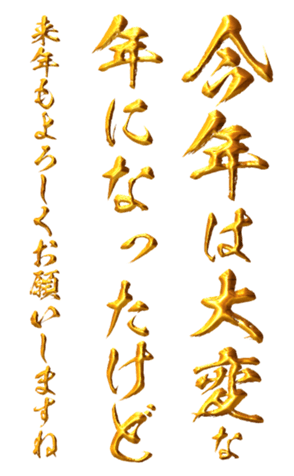 今年は大変な
年になったけど
来年もよろしくお願いしますね